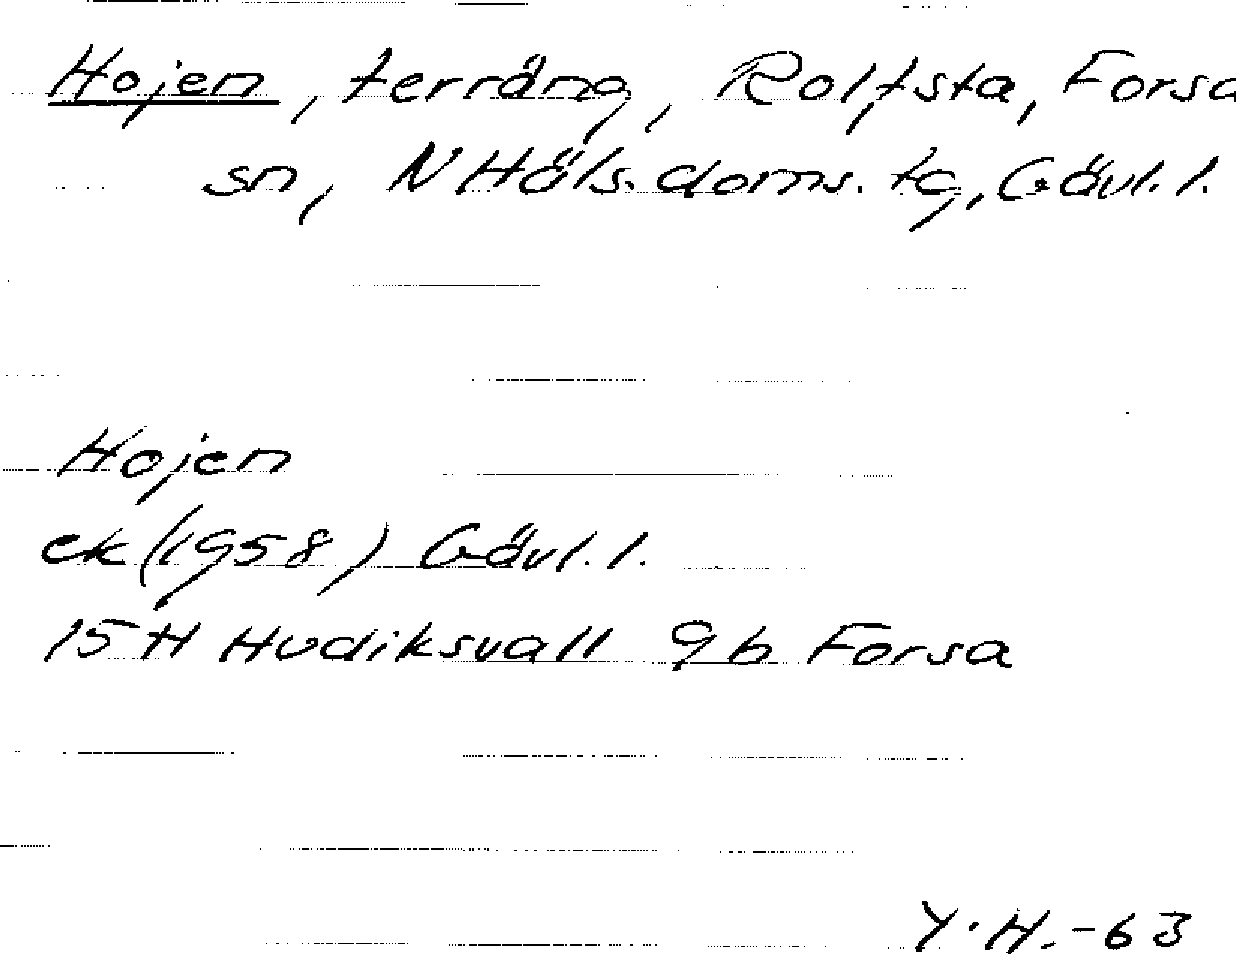 Hojen, terräng, Rolfsta, Forsa
sn, N Häls. doms. tg, Gävl. l.
Hojen
ek (1958) Gävl. l.
15 H Hudiksvall 9b Forsa
Y.H.-63